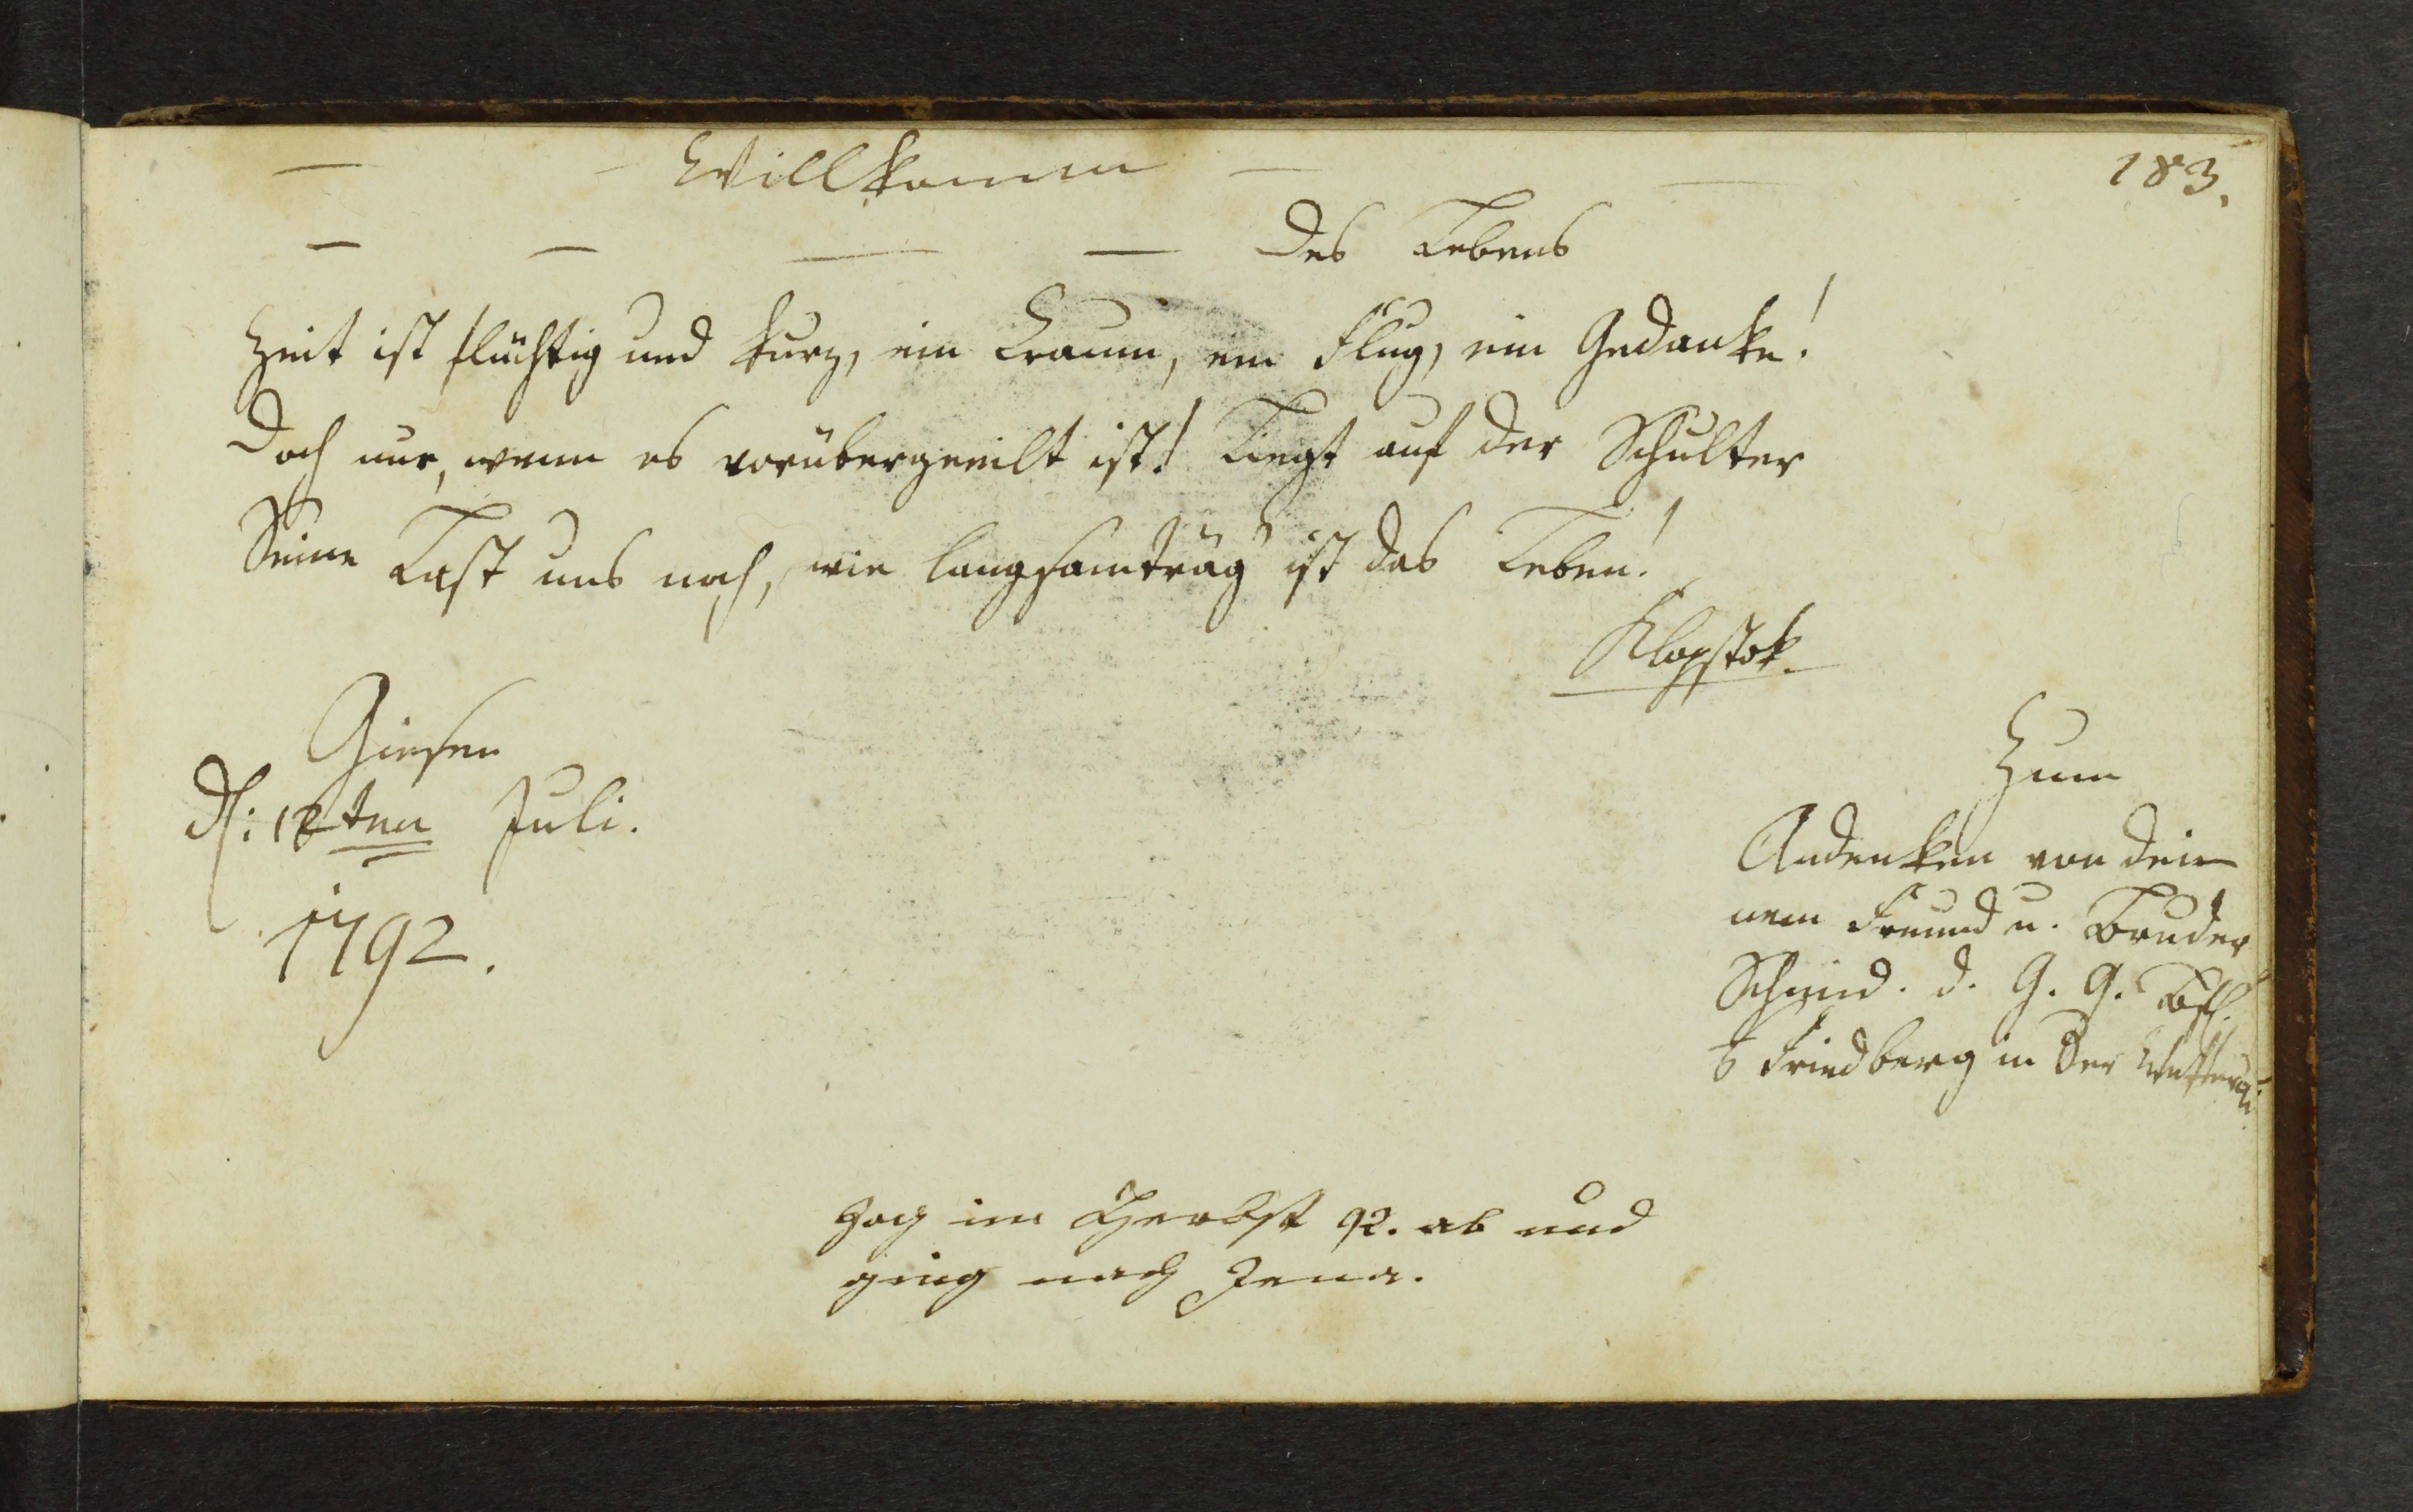 — — Willkomm — — 183.
— — — — des Lebens
Zeit ist flüchtig und kurz, ein Traum, ein Flug, ein Gedanke!
Doch nur, wenn es vorübergeeilt ist! Liegt auf der Schulter
Seine Last uns noch, wie langsamträg ist das Leben!
Klopstok.
Giesen
d: 12ten Juli.
1792.
Zum
Andenken von dei
nem Freund u. Bruder
Schmid. d. G. G. Bfl.
Friedberg in der Wetterau
Zog im Herbst 92. ab und
ging nach Jena.